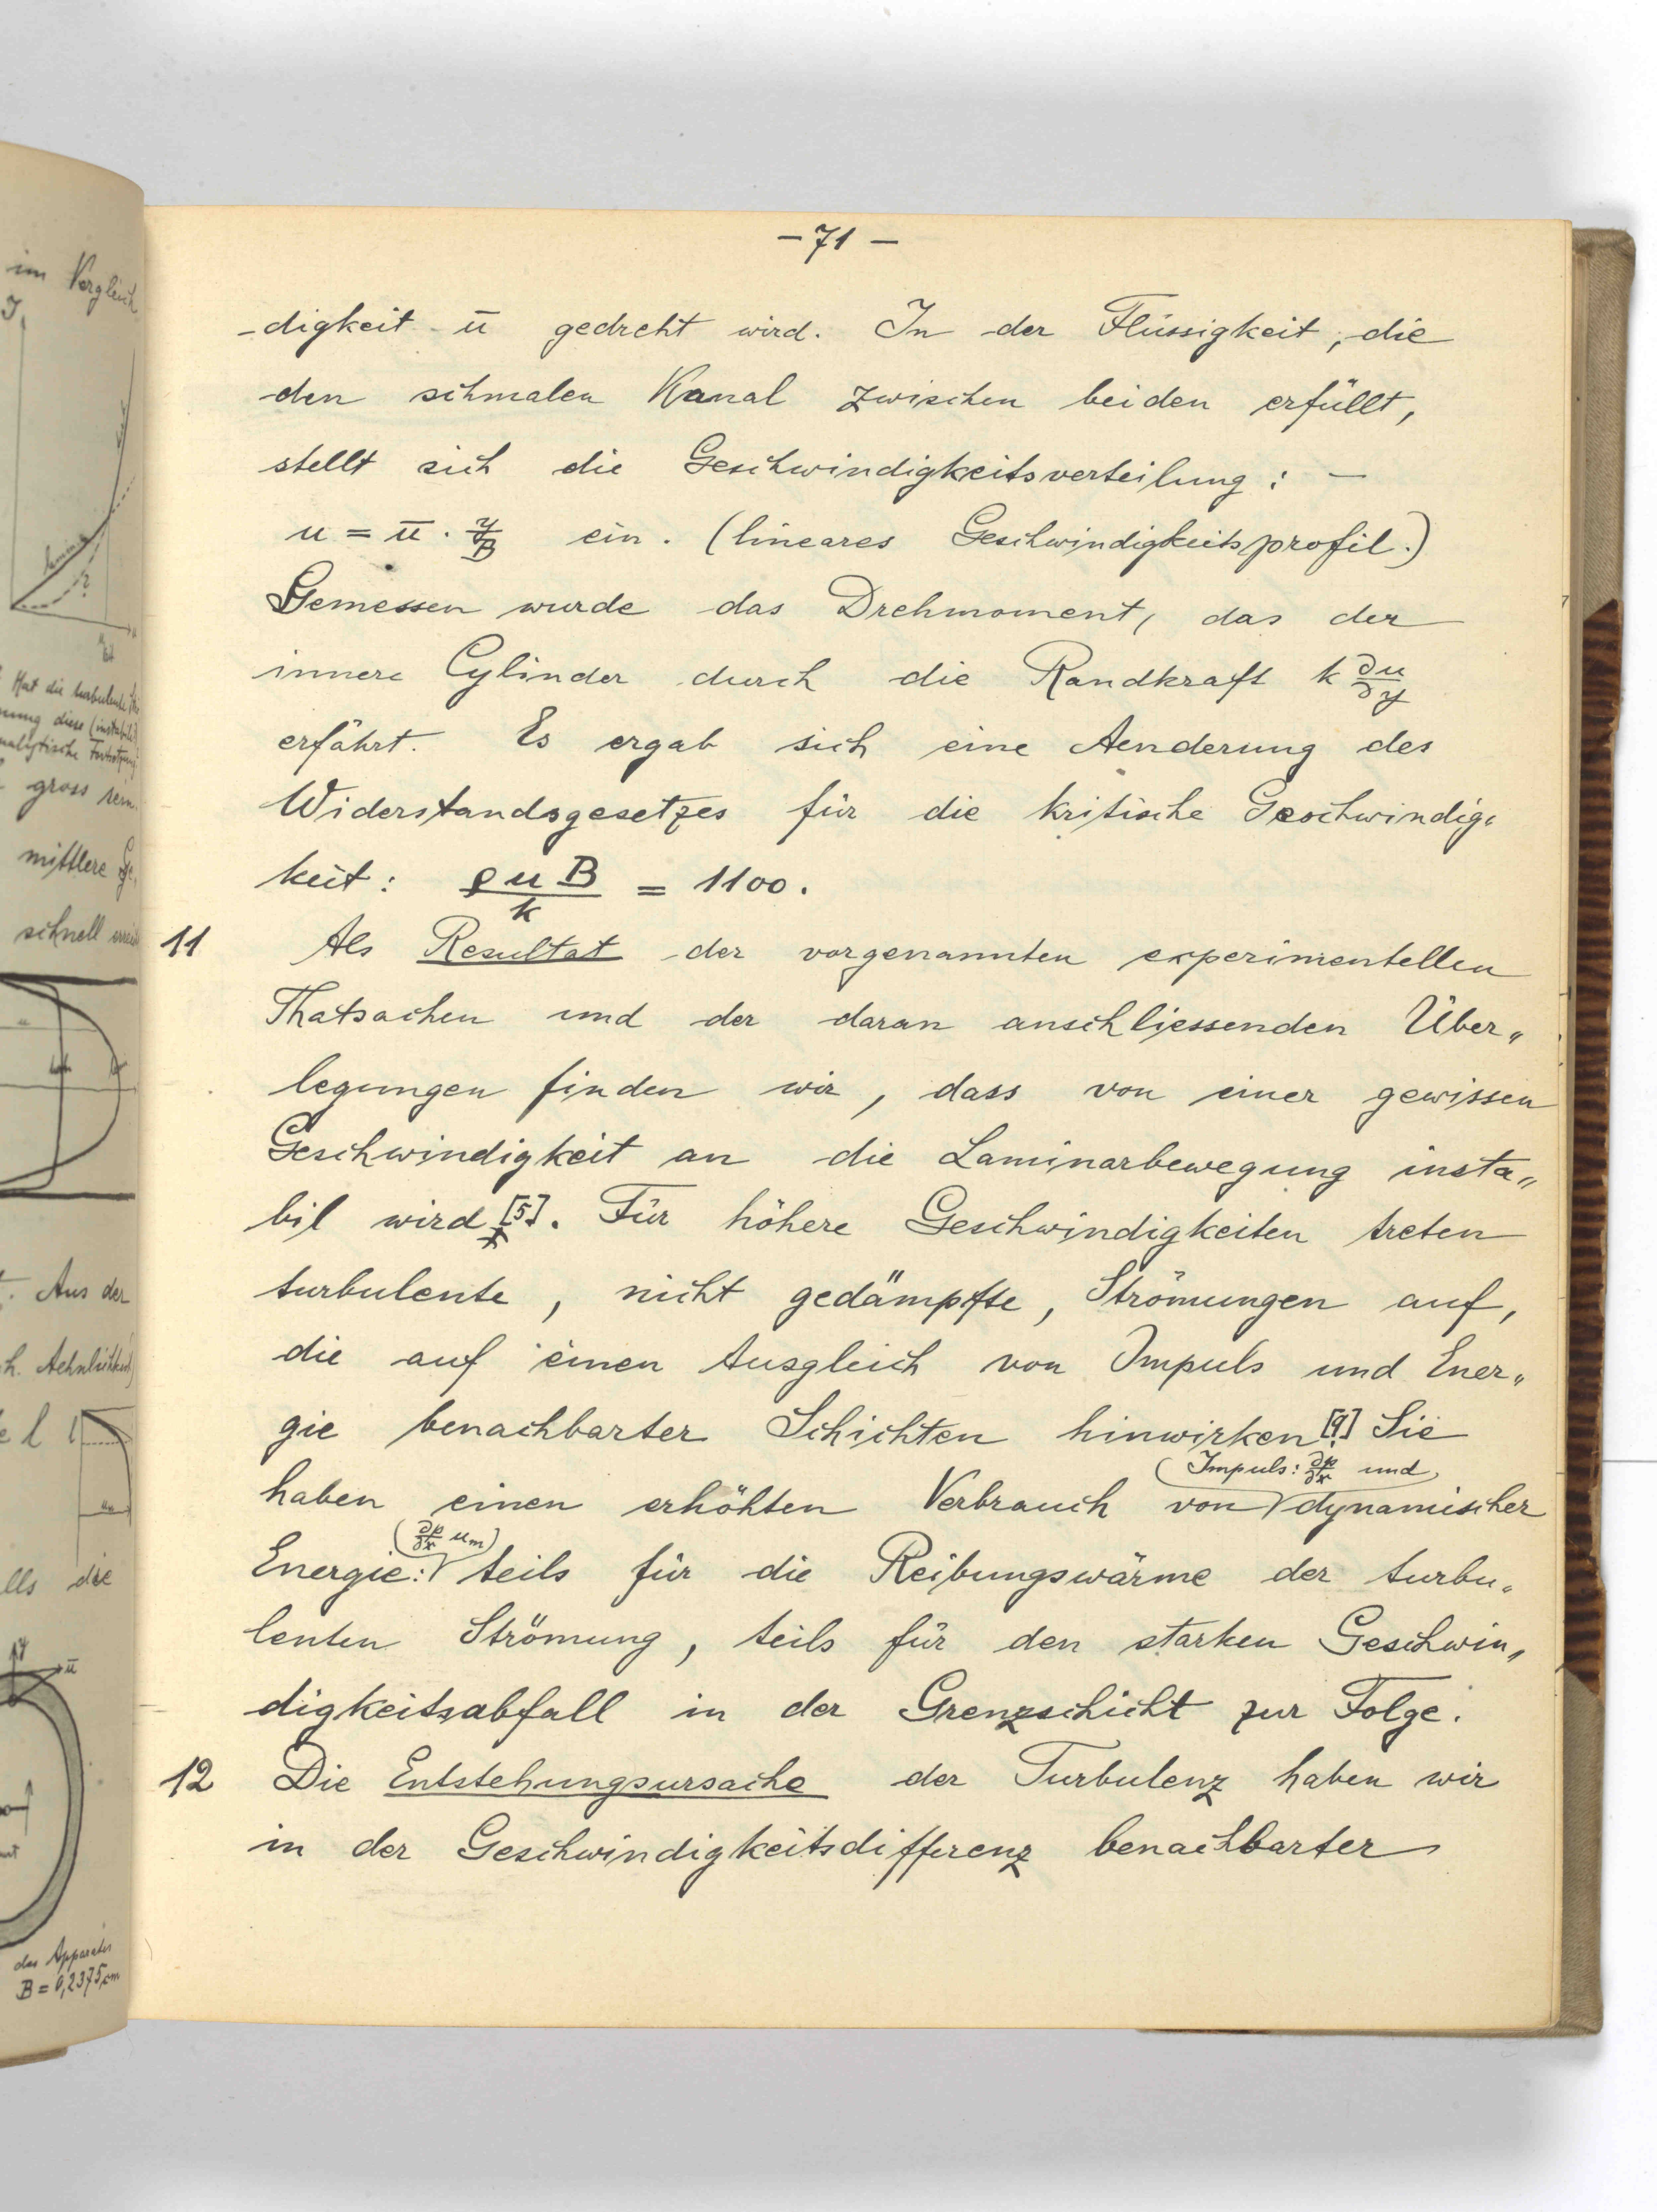 im Vergleich
J
lamin
?
Hat die turbulente
gross sein
mittlere Ge„
schnell
Aus der
h. Aehnlichkeit
l
die
y
ū
des Apparates
B = 0,2375 cm
– 71 –
-digkeit ū gedreht wird. In der Flüssigkeit, die
den schmalen Kanal zwischen beiden erfüllt,
stellt sich die Geschwindigkeitsverteilung: –
u = ū · y/B ein. (lineares Geschwindigkeitsprofil.)
Gemessen wurde das Drehmoment, das der
innere Cylinder durch die Randkraft k ∂u/∂y
erfährt. Es ergab sich eine Aenderung des
Widerstandsgesetzes für die kritische Geschwindig„
keit: ρuB/k = 1100.
11 Als Resultat der vorgenannten experimentellen
Thatsachen und der daran anschliessenden Über„
legungen finden wir, dass von einer gewissen
Geschwindigkeit an die Laminarbewegung insta„
bil wird [5]. Für höhere Geschwindigkeiten treten
turbulente, nicht gedämpfte, Strömungen auf,
die auf einen Ausgleich von Impuls und Ener„
gie benachbarter Schichten hinwirken [9]. Sie
(Impuls: ∂p/∂x und
haben einen erhöhten Verbrauch von dynamischer
(∂p/∂x um)
Energie: teils für die Reibungswärme der turbu„
lenten Strömung, teils für den starken Geschwin„
digkeitsabfall in der Grenzschicht zur Folge.
12 Die Entstehungsursache der Turbulenz haben wir
in der Geschwindigkeitsdifferenz benachbarter